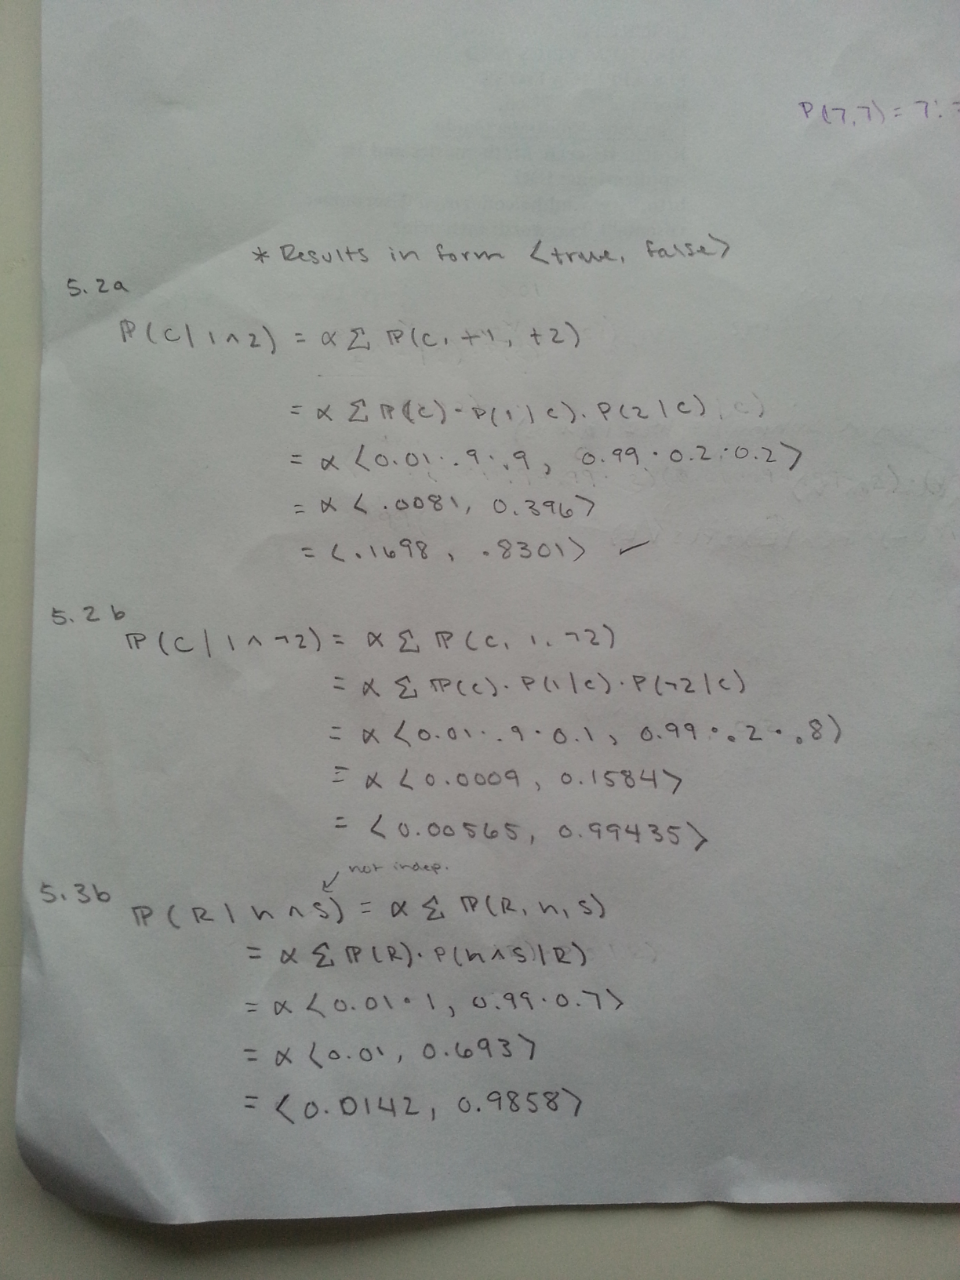 P(7,7) = 7!
* Results in form <true, false>
5.2a
ℙ(C|1∧2) = α Σ ℙ(C, +1, +2)
= α Σ ℙ(C) · P(1|C) · P(2|C)
= α <0.01 · .9 · .9, 0.99 · 0.2 · 0.2>
= α <.0081, 0.396>
= <.1698, .8301> ✓
5.2b
ℙ(C|1∧¬2) = α Σ ℙ(C, 1, ¬2)
= α Σ ℙ(C) · P(1|C) · P(¬2|C)
= α <0.01 · .9 · 0.1, 0.99 · .2 · .8)
= α <0.0009, 0.1584>
= <0.00565, 0.99435>
not indep.
5.3b
ℙ(R|n∧S) = α Σ ℙ(R, n, S)
= α Σ ℙ(R) · P(n∧S|R)
= α <0.01 · 1, 0.99 · 0.7>
= α <0.01, 0.693>
= <0.0142, 0.9858>